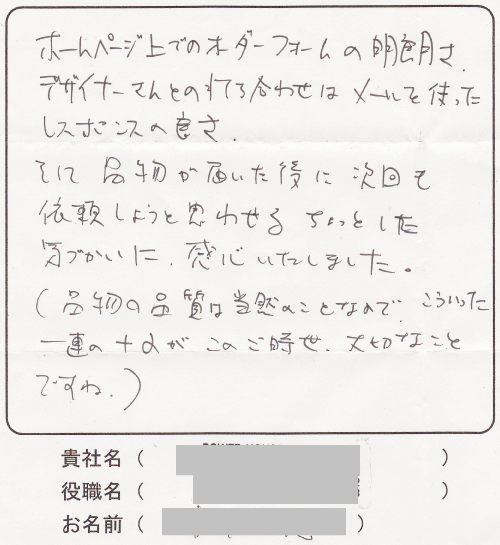 ホームページ上でのオーダーフォームの明食月さ.
デザイナーさんとの打ち合わせはメールを使った
レスポンスの良さ.
そして品物が届いた後に次回も
依頼しようと思わせるちょっとした
気づかいに、感心いたしました。
(品物の品質は当然のことなので、こういった
一連の+αがこのご時世、大切なこと
ですね.)
貴社名(     )
役職名(     )
お名前(     )